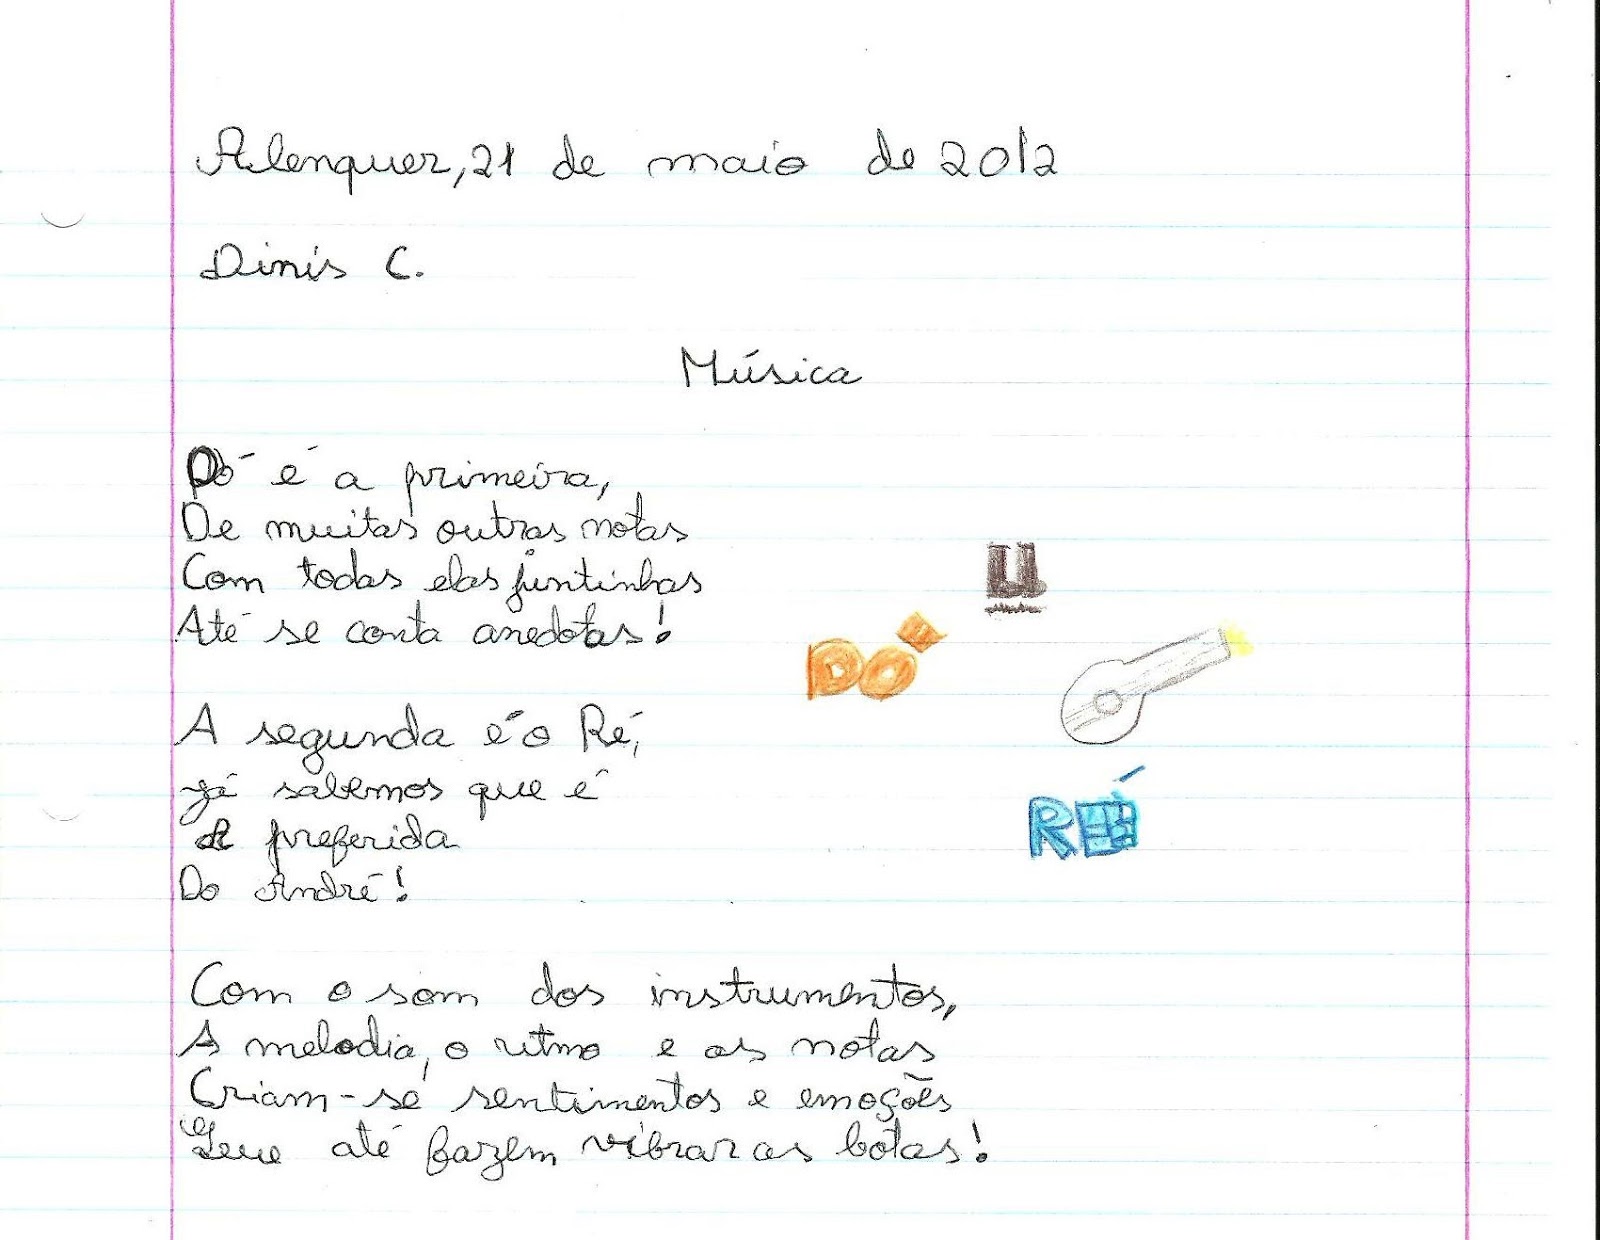 Alenquer, 21 de maio de 2012
Dinis C.
Música
Dó é a primeira,
De muitas outras notas
Com todas elas juntinhas
Até se conta anedotas!
DÓ
A segunda é o Ré,
já sabemos que é
a preferida
Do André!
RÉ
Com o som dos instrumentos,
A melodia, o ritmo e as notas
Criam-se sentimentos e emoções
Que até fazem vibrar as botas!